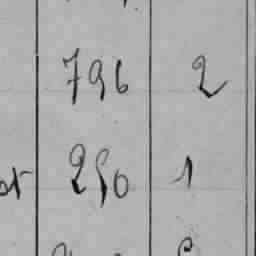 796 2
250 1